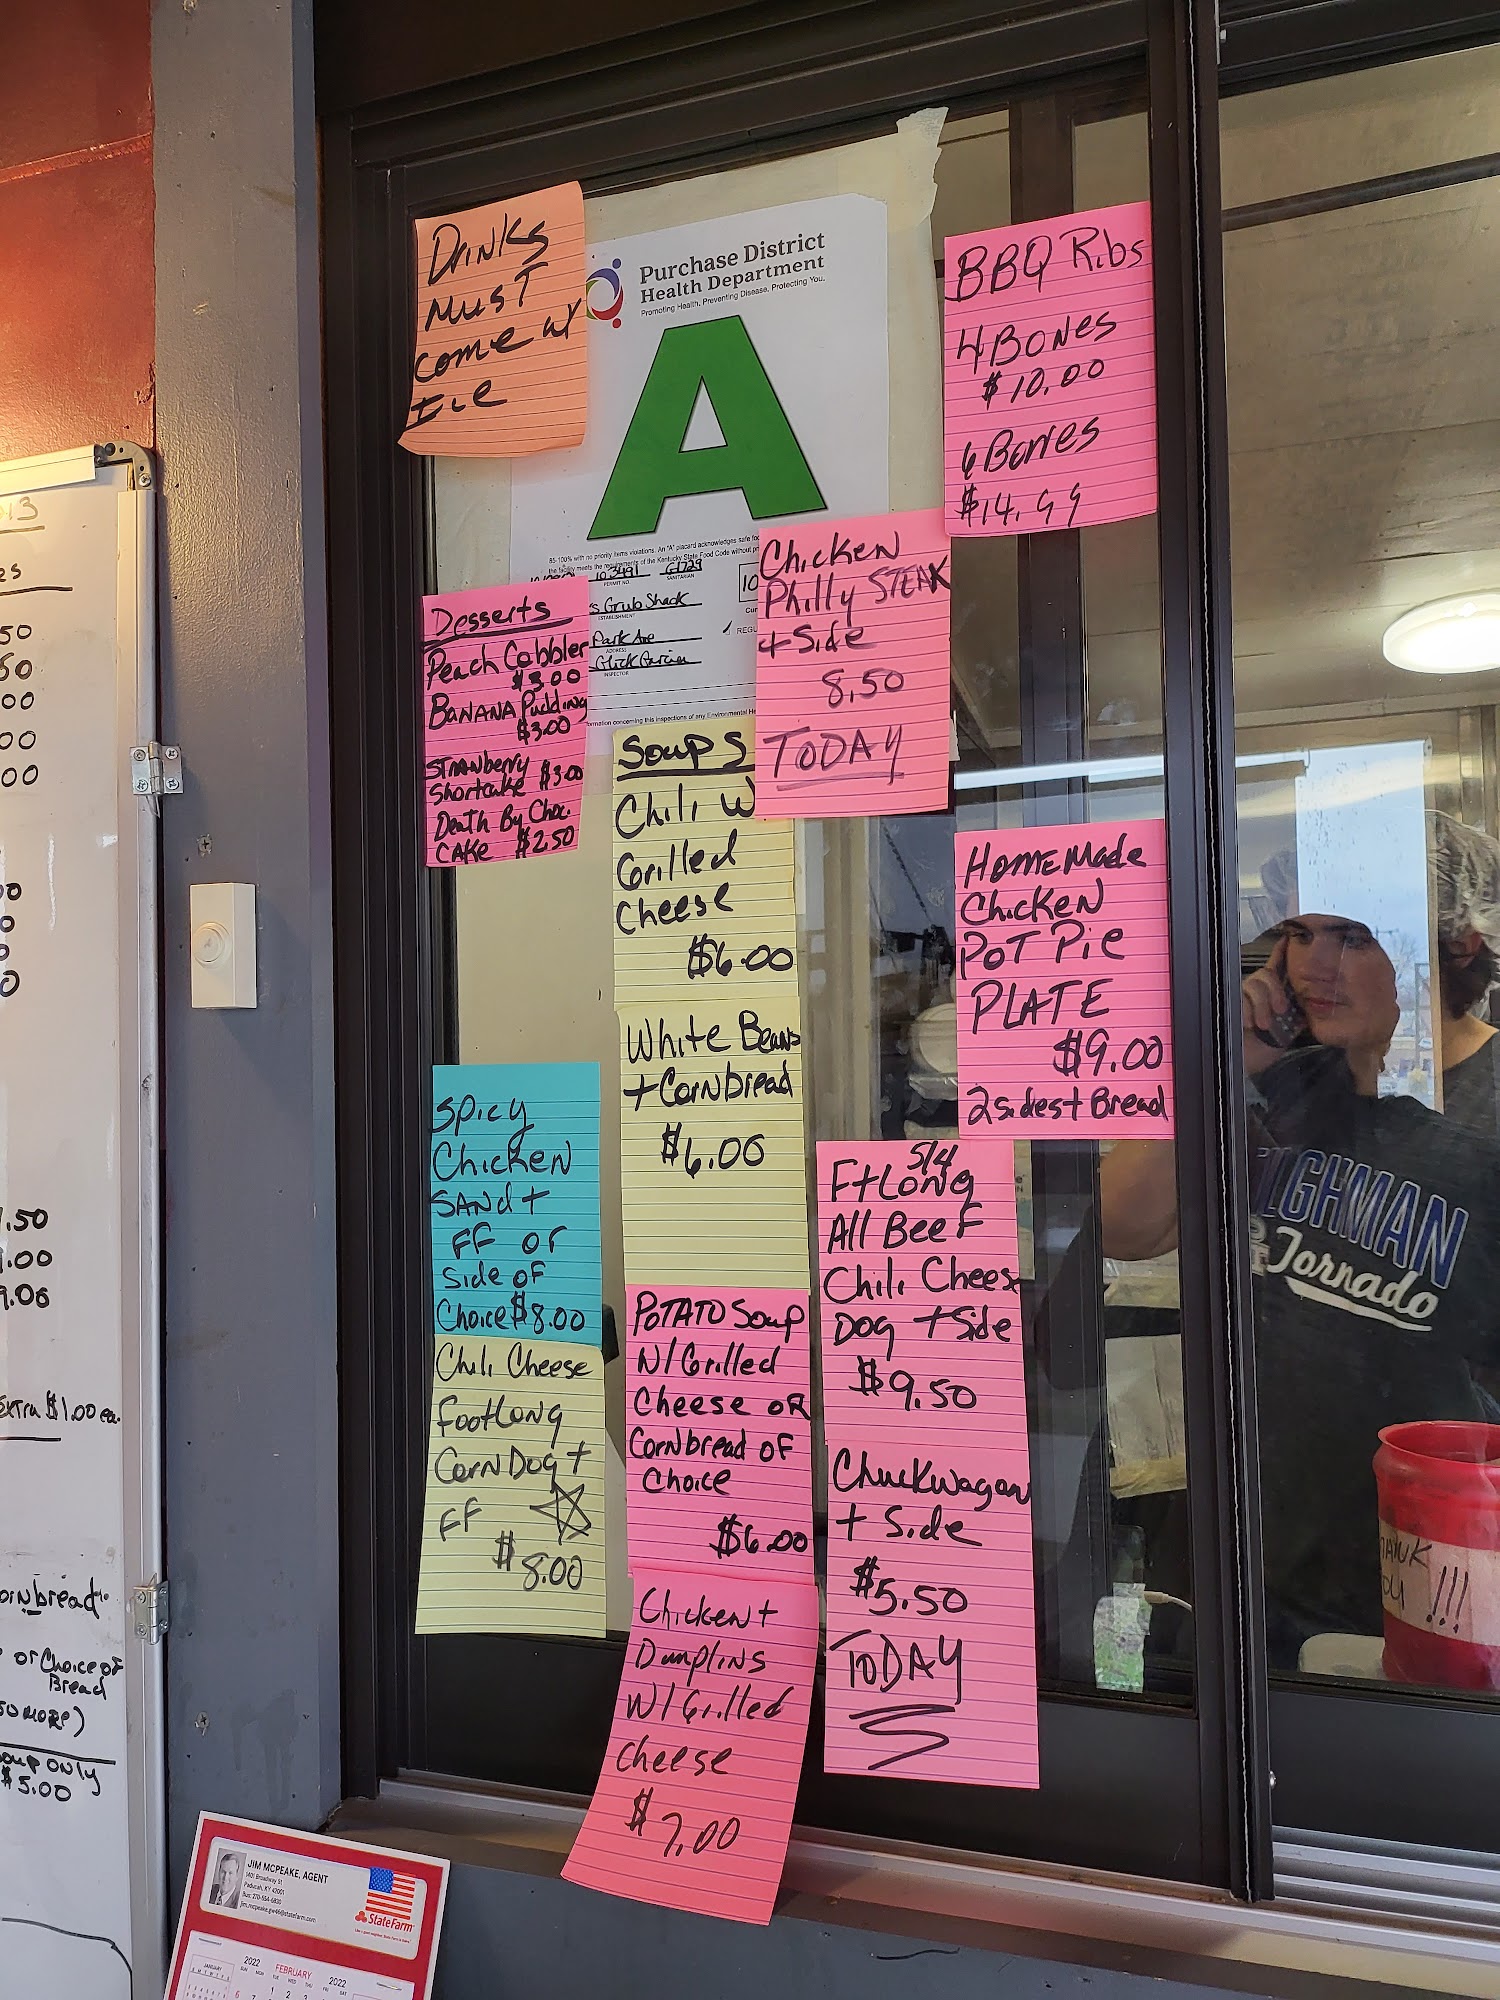 Drinks
Must
come w/
Ice
Purchase District
Health Department
Promoting Health. Preventing Disease. Protecting You.
A
85-100% with no priority items violations. An "A" placard acknowledges safe
the facility meets the requirements of the Kentucky State Food Code without
103491
PERMIT NO
SANITARIAN
s Grub Shack
ESTABLISHMENT
Park Ave
ADDRESS
INSPECTOR
10
REGU
concerning this inspections of any Environmental
BBQ Ribs
4 Bones
$10.00
6 Bones
$14.99
Chicken
Philly STEAK
+ Side
8.50
TODAY
Desserts
Peach Cobbler
$3.00
BANANA Pudding
$3.00
Strawberry
Shortcake $3.00
Death By Choc.
CAKE $2.50
Soups
Chili W
Grilled
Cheese
$6.00
White Beans
+ Cornbread
$6.00
HomeMade
Chicken
POT Pie
PLATE
$9.00
2 sides + Bread
Spicy
Chicken
SANd +
FF or
Side of
Choice $8.00
Chili Cheese
FootLong
Corn Dog +
FF
$8.00
POTATO Soup
W/Grilled
Cheese OR
Cornbread of
Choice
$6.00
Chicken +
Dumplins
W/Grilled
Cheese
$7.00
5/4
FtLong
All Beef
Chili Cheese
Dog + Side
$9.50
Chuckwagon
+ Side
$5.50
TODAY
ILGHMAN
Tornado
THANK
YOU !!!
50
50
00
00
00
.50
.00
9.00
Extra $1.00 ea.
ornbread
or Choice of
Bread
50 more)
oup only
$5.00
JIM MCPEAKE, AGENT
1401 Broadway St
Paducah, KY 42001
Bus: 270-554-6830
jim.mcpeake.gw46@statefarm.com
StateFarm
JANUARY
2022
FEBRUARY
2022